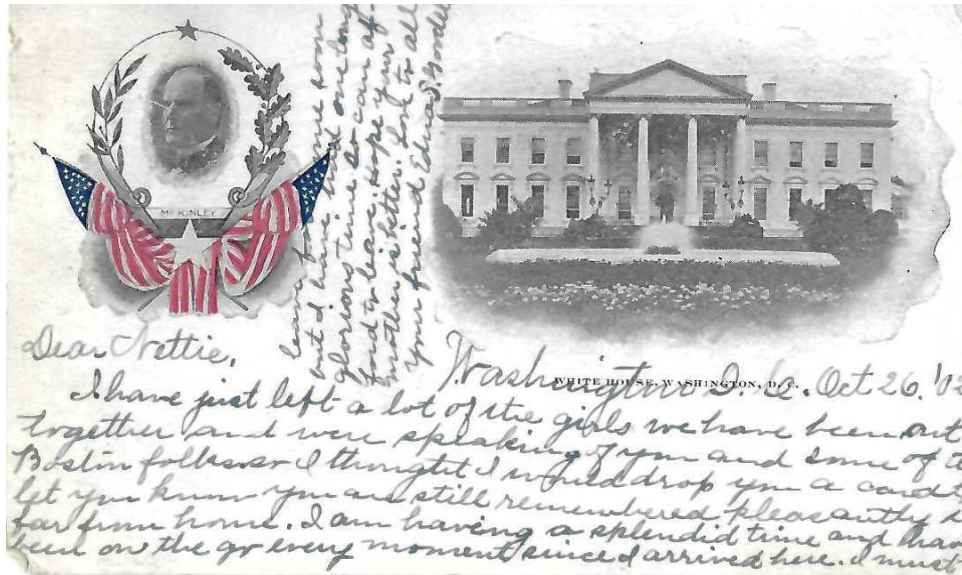 McKINLEY
WHITE HOUSE, WASHINGTON, D. C.
Washington D. C. Oct 26. '02
Dear Nettie,
I have just left a lot of the girls we have been out
together and were speaking of you and some of t
Boston folks so I thought I would drop you a card t
let you know you are still remembered pleasantly s
far from home. I am having a splendid time and hav
been on the go every moment since I arrived here. I must
leave for home soon
but I have had one long
glorious time so can af-
ford to leave. Hope your
mother is better. Love to all
Your friend Edna S.